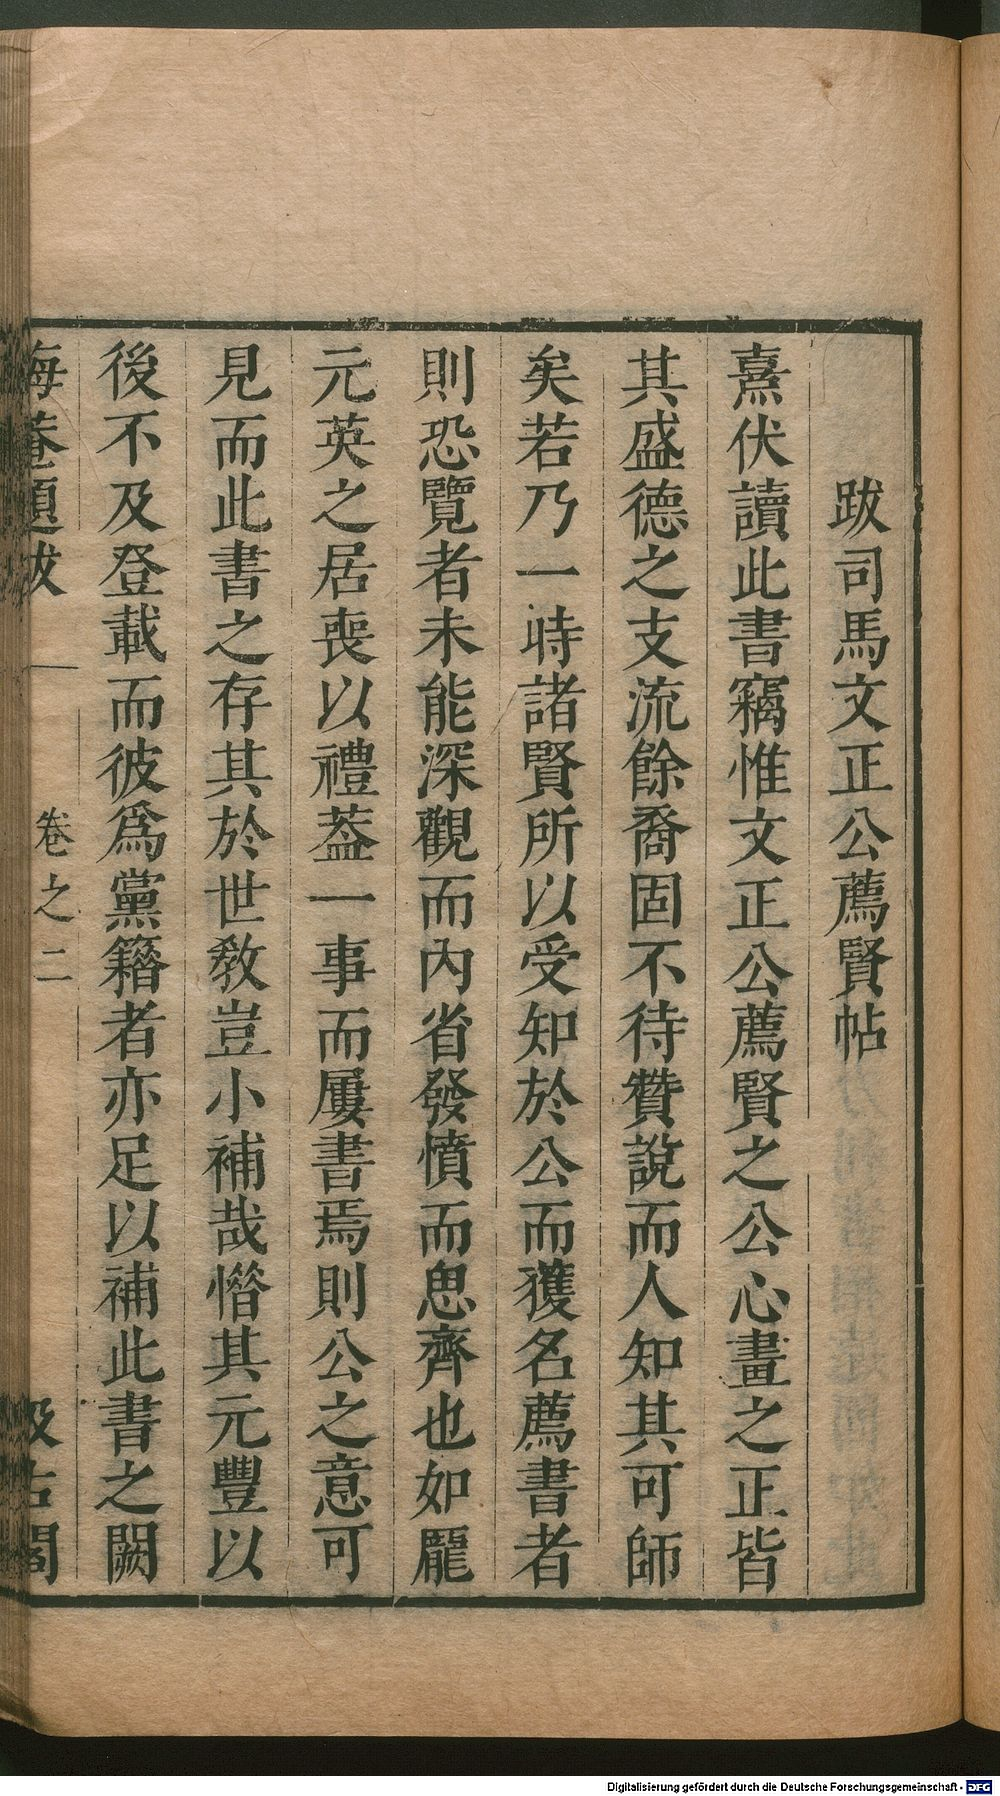 跋司馬文正公薦賢帖
熹伏讀此書竊惟文正公薦賢之公心畫之正皆
其盛德之支流餘裔固不待贊說而人知其可師
矣若乃一時諸賢所以受知於公而獲名薦書者
則恐覽者未能深觀而內省發憤而思齊也如龎
元英之居喪以禮葢一事而屢書焉則公之意可
見而此書之存其於世敎豈小補哉惜其元豐以
後不及登載而彼爲黨籍者亦足以補此書之闕
晦菴題跋 卷之二 汲古閣
Digitalisierung gefördert durch die Deutsche Forschungsgemeinschaft - DFG